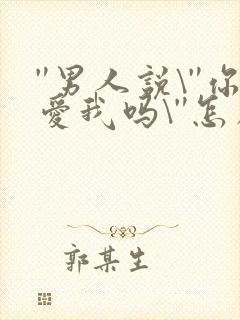 "男人説\"你
愛我吗\"怎
郭某生